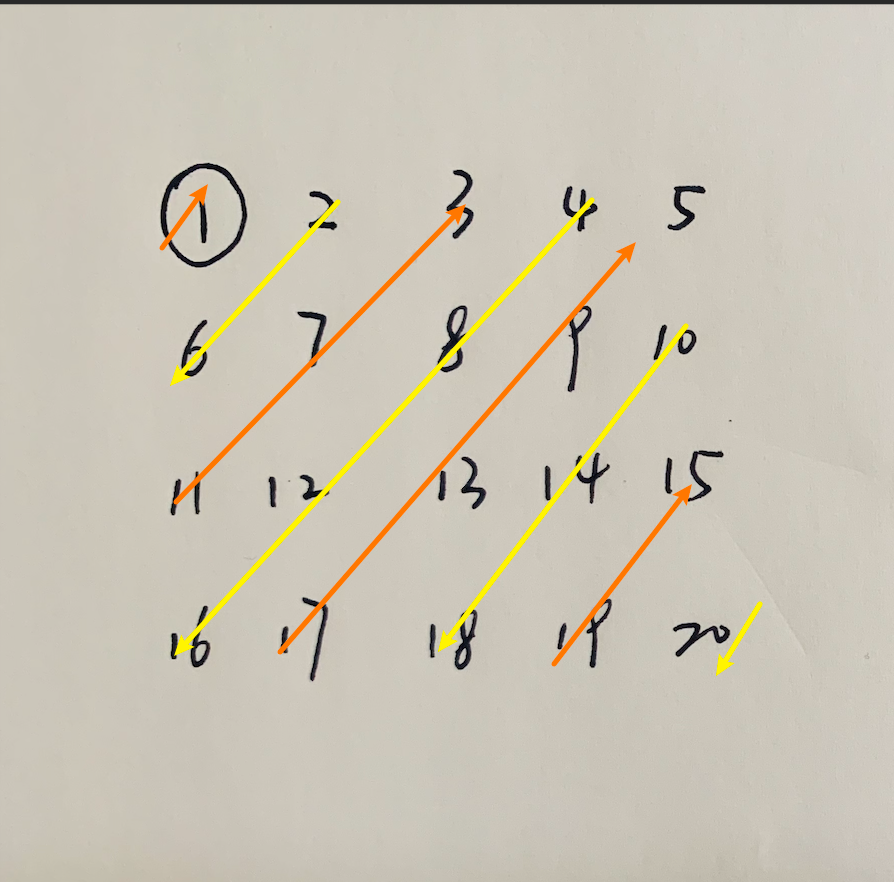 1 2 3 4 5
6 7 8 9 10
11 12 13 14 15
16 17 18 19 20